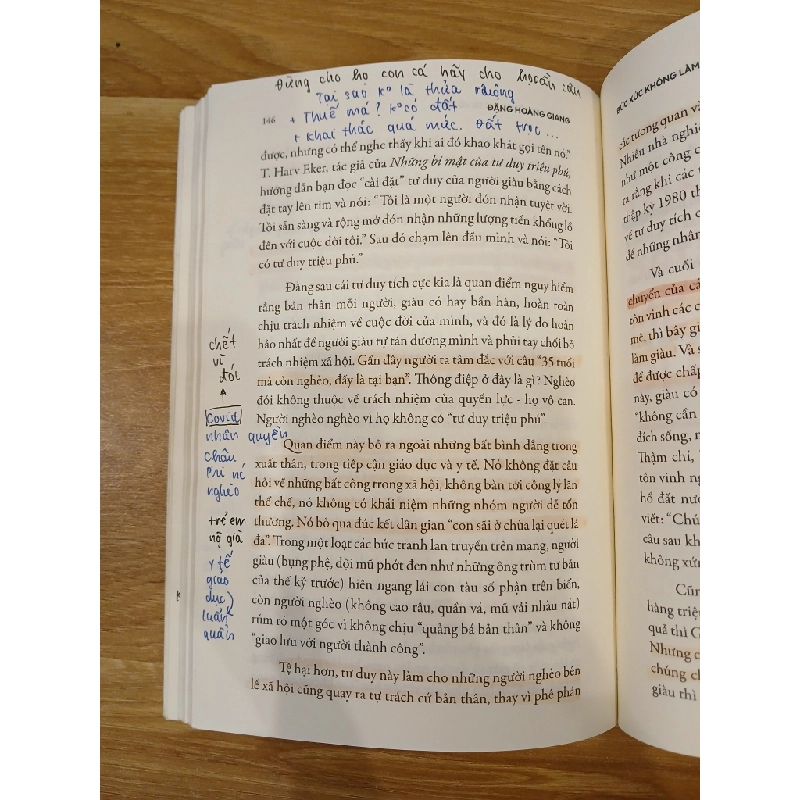 Đừng cho họ con cá hãy cho họ cần câu
Tại sao kº là thừa ruộng
146
+ Thuế má? kº có đất
ĐẶNG HOÀNG GIANG
+ khai thác quá mức. Đất trọc ...
được, nhưng có thể nghe thấy khi ai đó khao khát gọi tên nó."
T. Harv Eker, tác giả của Những bí mật của tư duy triệu phú,
hướng dẫn bạn đọc "cài đặt" tư duy của người giàu bằng cách
đặt tay lên tim và nói: "Tôi là một người đón nhận tuyệt vời.
Tôi sẵn sàng và rộng mở đón nhận những lượng tiền khổng lồ
đến với cuộc đời tôi." Sau đó chạm lên đầu mình và nói: "Tôi
có tư duy triệu phú."
Đằng sau cái tư duy tích cực kia là quan điểm nguy hiểm
rằng bản thân mỗi người, giàu có hay bần hàn, hoàn toàn
chịu trách nhiệm về cuộc đời của mình, và đó là lý do hoàn
hảo nhất để người giàu tự tán dương mình và phủi tay chối bỏ
trách nhiệm xã hội. Gần đây người ta tâm đắc với câu "35 tuổi
mà còn nghèo, đấy là tại bạn". Thông điệp ở đây là gì? Nghèo
đói không thuộc về trách nhiệm của quyền lực - họ vô can.
Người nghèo nghèo vì họ không có "tư duy triệu phú"
Quan điểm này bỏ ra ngoài những bất bình đẳng trong
xuất thân, trong tiếp cận giáo dục và y tế. Nó không đặt câu
hỏi về những bất công trong xã hội, không bàn tới công lý lẫn
thể chế, nó không có khái niệm những nhóm người dễ tổn
thương. Nó bỏ qua đúc kết dân gian "con sãi ở chùa lại quét lá
đa". Trong một loạt các bức tranh lan truyền trên mạng, người
giàu (bụng phệ, đội mũ phớt đen như những ông trùm tư bản
của thế kỷ trước) hiên ngang lái con tàu số phận trên biển,
còn người nghèo (không cạo râu, quần vá, mũ vải nhàu nát)
rúm ró một góc vì không chịu "quảng bá bản thân" và không
"giao lưu với người thành công".
Tệ hại hơn, tư duy này làm cho những người nghèo bên
lề xã hội cũng quay ra tự trách cứ bản thân, thay vì phê phán
chết
vì
đói
Covid
nhân quyền
châu
Phi nó
nghèo
trẻ em
ng già
y tế
giáo
dục
luẩn
quẩn
BỨC XÚC KHÔNG LÀM
các tương quan và
Nhiên nhà nghiê
như một công c
ra rằng khi các t
thập kỷ 1980 th
về tư duy tích c
để những nhân
Và cuối
chuyển của cả
tôn vinh các c
mẽ, thì bây gi
làm giàu. Và s
để được chấp
này, giàu có
"không cần
đích sống, n
Thậm chí,
tôn vinh ng
hồ đất nướ
viết: "Chú
câu sau kh
không xứn
Cũn
hàng triệ
quả thì G
Nhưng c
chúng ch
giàu thì